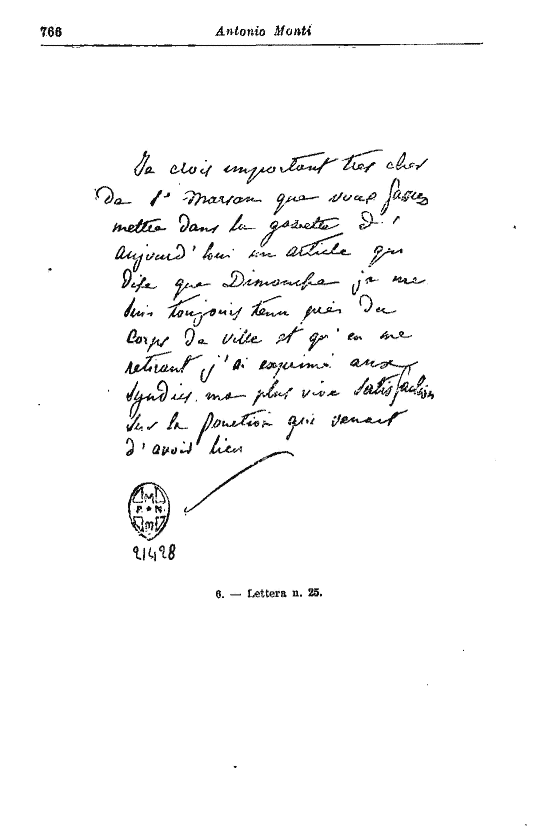 766 Antonio Monti
Je crois important tres cher
De St Marsan que vous fassiez
mettre dans la gazette D'
aujourd'hui un article qui
Dise que Dimanche je me
suis toujours tenu près Du
Corps De Ville et qu'en me
retirant j'ai exprimé aux
syndics ma plus vive satisfaction
sur la fonction qui venait
d'avoir lieu
M
P. N.
M
21428
6. — Lettera n. 25.